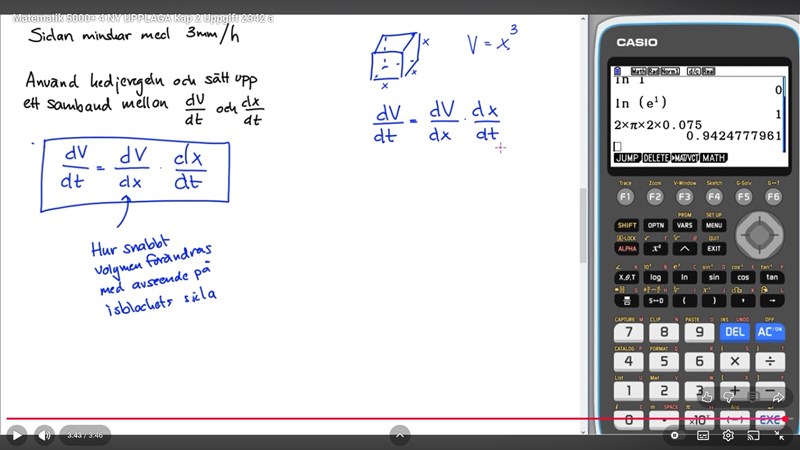 Matematik 5000+ 4 NY UPPLAGA Kap 2 Uppgift 2342 a
Sidan minskar med 3mm/h
Använd kedjeregeln och sätt upp
ett samband mellan dV/dt och dx/dt
dV/dt = dV/dx · dx/dt
Hur snabbt
volymen förändras
med avseende på
isblockets sida
x
x
x
V = x³
dV/dt = dV/dx · dx/dt
CASIO
Math Rad Norm1 d/c Real
ln 1
0
ln (e¹)
1
2×π×2×0.075
0.9424777961
JUMP DELETE ►MAT/VCT MATH
Trace Zoom V-Window Sketch G-Solv G↔T
F1 F2 F3 F4 F5 F6
PRGM SET UP
SHIFT OPTN VARS MENU
A-LOCK QUIT
ALPHA x² ^ EXIT
sin⁻¹ cos⁻¹ tan⁻¹
X,θ,T log ln sin cos tan
S↔D ( ) , →
CAPTURE CLIP PASTE INS UNDO OFF
7 8 9 DEL AC/ON
CATALOG FORMAT
4 5 6 × ÷
List Mat
1 2 3 + −
SPACE
0 · ×10ˣ (−) EXE
3:43 / 3:46